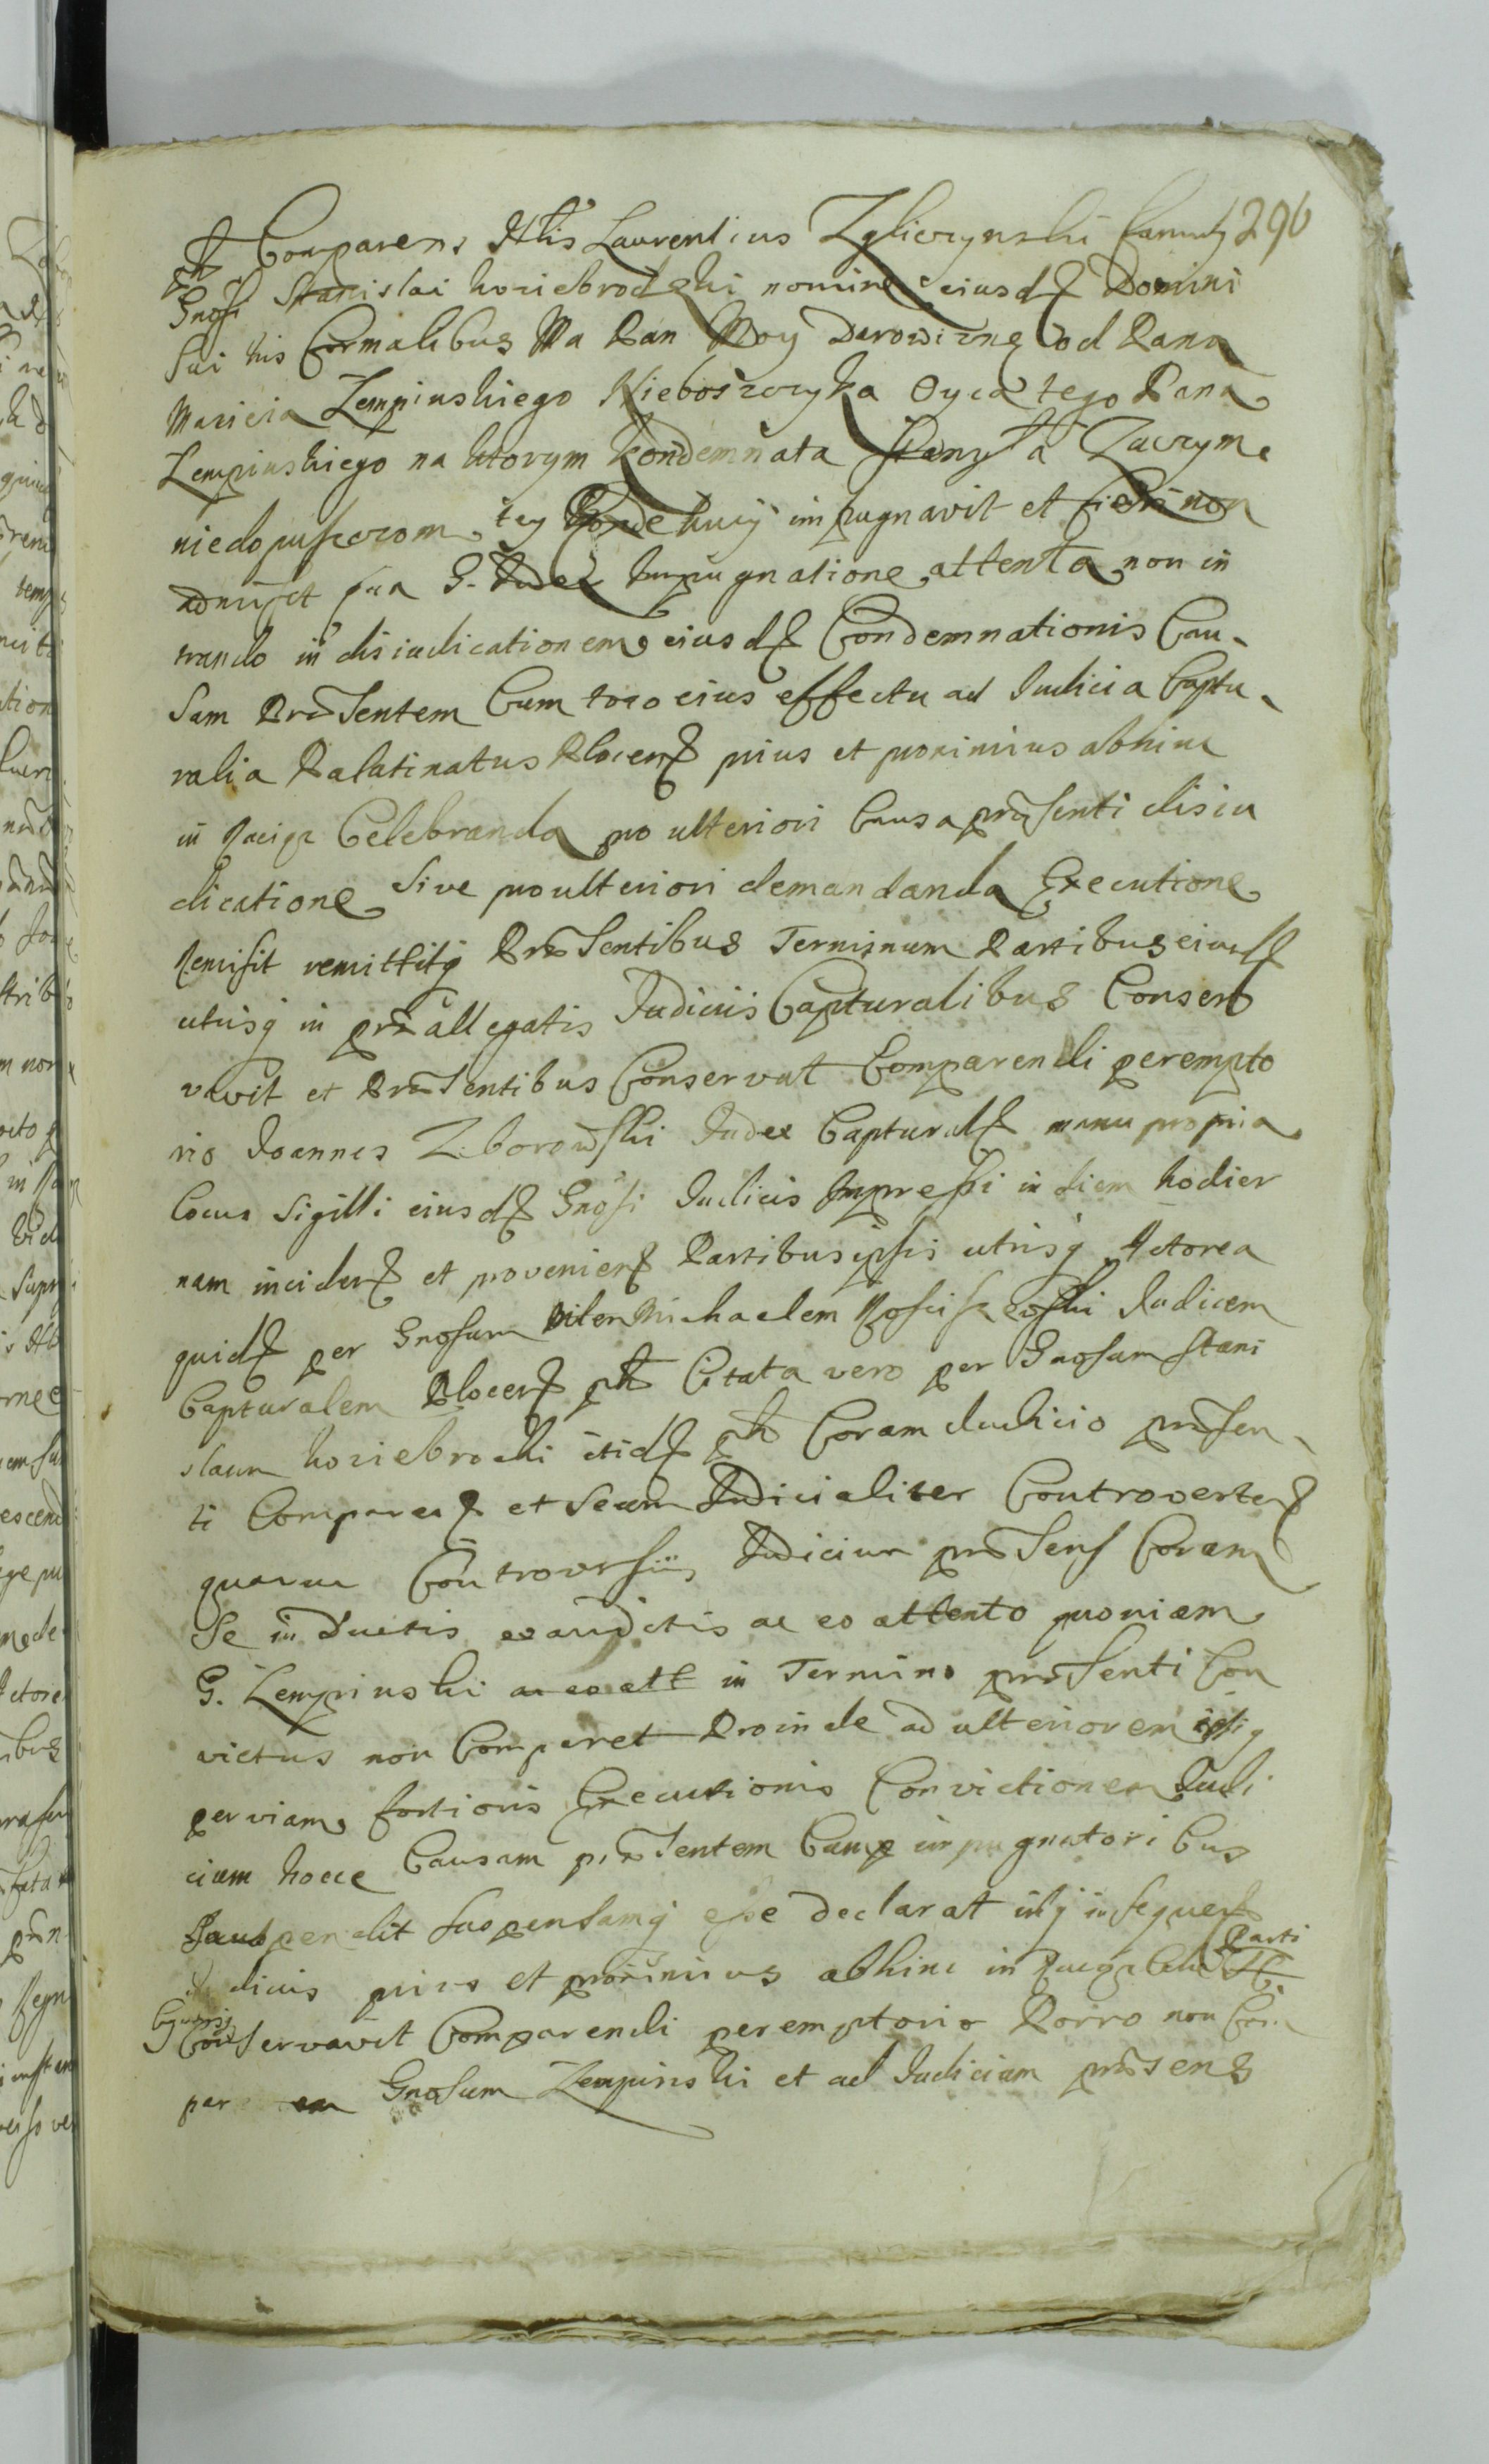 296
Comparens Nblis Laurentius Zgliczynski
Gnosi Stanislai koziebrodzki nomine eiusd Domini
Sui his formalibus Ma Pan Moy Darowiznę od Pana
Macieia Zempinskiego Nieboszczyka Oyca tego Pana
Zempinskiego na ktorym kondemnata Zaczym
niedopuszczom tey impugnavit et fieri non
admisit qua G. Judex Impugnatione attenta non in
trando in disiudicationem eiusd Condemnationis Cau
sam Præsentem Cum toto eius effectu ad Iudicia Captu
ralia Palatinatus Plocen prius et proximius abhinc
in Raciąz Celebranda pro ulteriori Causa præsenti disiu
dicatione sive pro ulteriori demandanda Executione
Remisit remittitq Præsentibus Terminum Partibus eiusd
utrisq in præallegatis Judiciis Capturalibus Conser
vavit et Præsentibus Conservat Comparendi perempto
rio Joannes Zborowski Judex Capturał manu propria
Locus Sigilli eiusd Gnosi Iudicis Impressi in diem hodier
nam inciden et provenien Partibus ipsis utrisq Actorea
quid per Gnosum Michaelem Judicem
Capturalem Plocen Citata vero per Gnosum Stani
slaum koziebrodzki itid Coram Iudicio præsen
ti Comparen et secum Judicialiter Controverten
quarum Controversiis Judicium præsens Coram
Se inductis exauditis ac eo attento quoniam
G. Zempinski ac eo att in Termino præsenti Con
victus non Comparet Proinde ad ulteriorem
per viam fortioris Executionis Convictionem Iudi
cium hocce Causam præsentem impugnatoribus
Suspendit suspensamq esse declarat in sequen
Judiciis prius et proximius abhinc in Parti
Conservavit Comparendi peremptorio Porro non Com
par Gnosum Zempinski et ad Iudicium præsens